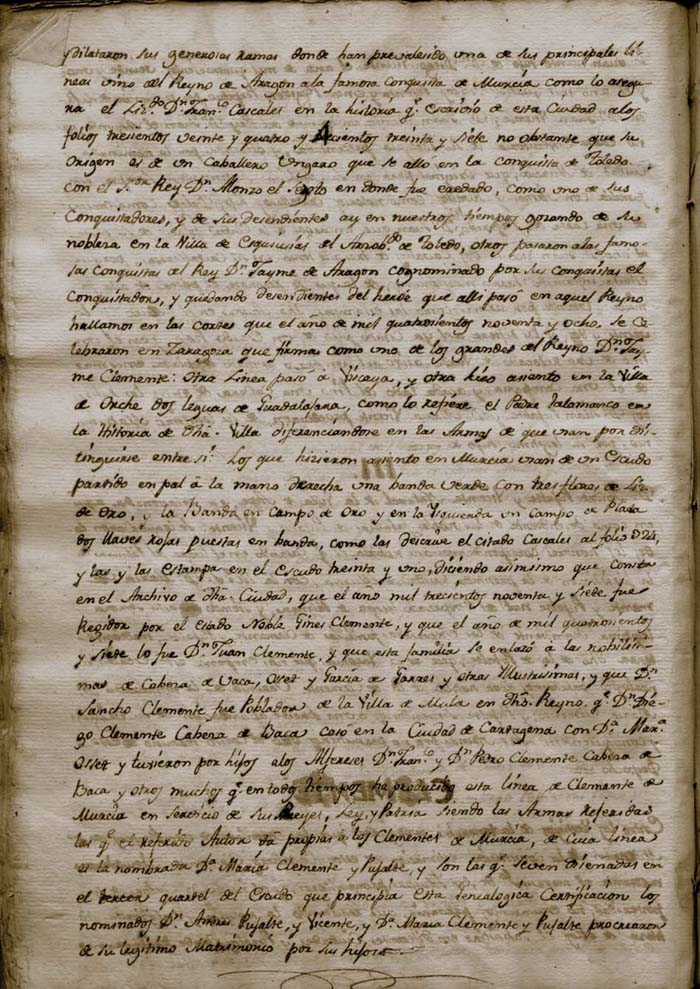 y Dilataron sus generosas ramas donde han prevalesido una de sus principales lí-
neas vino del Reyno de Aragon a la famosa Conquista de Murcia como lo asegu-
ra el Liz.do D.n Fran.co Cascales en la historia q.e escrivio de esta Ciudad a los
folios tresientos veinte y quatro y trecientos treinta y siete no obstante que su
Origen es de un Caballero Ungaro que se allo en la conquista de Toledo
con el S.or Rey D.n Alonzo el Sexto en donde fue eredado, como uno de sus
Conquistadores, y de sus Desendientes ay en nuestros tiempos gozando de su
nobleza en la Villa de Esquiuias del Arzob.do de Toledo, otros pasaron a las famo-
sas conquistas del Rey D.n Jayme de Aragon cognominado por sus conquistas el
Conquistador, y quedando desendientes del heroe que alli pasó en aquel Reyno
hallamos en las cortes que el año de mil quatrosientos noventa y ocho se Ce-
lebraron en Zaragoza que firma como uno de los grandes del Reyno D.n Jay-
me Clemente: Otra Linea pasó à Viscaya, y otra hizo asiento en la Villa
de Orche dos leguas de Guadalajara, como lo refiere el Padre Talamanco en
la Historia de dha. Villa diferenciandose en las Armas de que usan por dis-
tinguirse entre si. Los que hizieron asiento en Murcia usan de un Escudo
partido en pal à la mano derecha una banda verde con tres flores de Liz
de Oro, y la Banda en Campo de Oro y en la Yzquierda un Campo de Plata
dos llaves rojas puestas en banda, como las descrive el citado Cascales al folio 324,
y las y las estampa en el escudo treinta y uno, diciendo asimismo que consta
en el Archivo de dha. Ciudad, que el año mil trecientos noventa y siete fue
Regidor por el estado Noble Gines Clemente, y que el año de mil quatrosientos
y siete lo fue D.n Juan Clemente, y que esta familia se enlazó à las nobilisi-
mas de Cabeza de Vaca, Osset y Garcia de Torres y otras Illustrisimas, y que D.n
Sancho Clemente fue Poblador de la Villa de Mula en dho. Reyno. q.e D.n Die-
go Clemente Cabeza de Baca casó en la Ciudad de Cartagena con D.a Mar.a
Osset y tuvieron por hijos a los Alfereses D.n Fran.co y D.n Pedro Clemente Cabeza de
Baca y otros muchos q.e en todos tiempos ha producido esta línea de Clemente de
Murcia en servicio de sus Reyes, Ley, y Patria siendo las Armas Referidas
las q.e el referido Autor da propias à los Clementes de Murcia, de cuia linea
es la nombrada D.a María Clemente y Pujalte, y son las q.e se ven Diseñadas en
el tercer quartel del Escudo que principia esta Genealogica Certificacion los
nominados D.n Andres Pujalte, y Vicente, y D.a Maria Clemente y Pujalte procrearon
de su legitimo Matrimonio por sus hijos